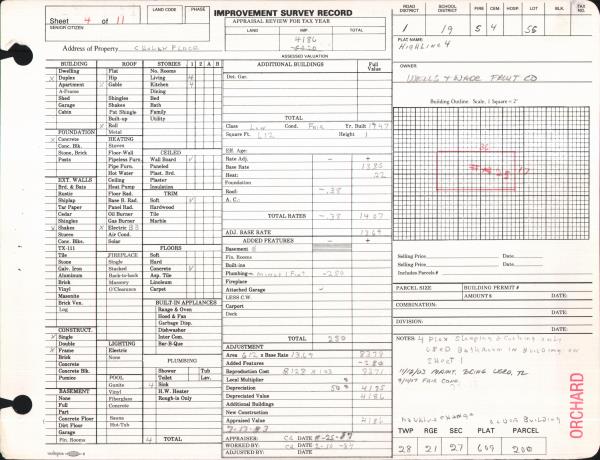 Sheet 4 of 11
SENIOR CITIZEN
LAND CODE
PHASE
IMPROVEMENT SURVEY RECORD
APPRAISAL REVIEW FOR TAX YEAR
LAND IMP TOTAL
4186
ASSESSED VALUATION
Address of Property
ROAD DISTRICT SCHOOL DISTRICT FIRE CEM HOSP. LOT BLK. TAX NO.
19 5 4 55
PLAT NAME:
HIGHLINE 4
OWNER:
WELLS & WADE FRUIT CO
Building Outline Scale, 1 Square = 2'
BUILDING ROOF STORIES 1 2 A B
Dwelling Flat No. Rooms
X Duplex Hip Living 4
Apartment X Gable Kitchen 4
A-Frame Dining
Shed Shingles Bed
Garage Shakes Bath
Cabin Pat Shingle Family
Built-up Utility
X Roll
FOUNDATION Metal
X Concrete HEATING
Conc. Blk. Stoves CEILED
Stone, Brick Floor-Wall Wall Board
Posts Pipeless Furn. Ceiling
Pipe Furn. Paneled
Hot Water Plast. Brd.
EXT. WALLS Ceiling Plaster
Brd. & Bats Heat Pump Insulation
Rustic Floor Rad. TRIM
Shiplap Base B. Rad. Soft
Tar Paper Panel Rad. Hardwood
Cedar Oil Burner Tile
Shingles Gas Burner Marble
X Shakes X Electric BB
Stucco Air Cond. FLOORS
Conc. Blks. Solar
TX-111 Soft
Tile FIREPLACE Hard
Stone Single Concrete
Galv. Iron Stacked Asp. Tile
Aluminum Back-to-back Linoleum
Brick Masonry Carpet
Vinyl O'Clearance
Masonite
Brick Ven. BUILT-IN APPLIANCES
Log Range & Oven
Hood & Fan
Garbage Disp.
CONSTRUCT. Dishwasher
X Single Inter Com.
Double LIGHTING Bar-B-Que
X Frame Electric
Brick None PLUMBING
Concrete
Concrete Blk. Shower Tub
Pumice POOL Toilet Lav.
Gunite 4 Sink
BASEMENT Vinyl H.W. Heater
None Fiberglass Rough-in Only
Full Concrete
Part
Concrete Floor Sauna
Dirt Floor Hot-Tub
Garage
Fin. Rooms 4 TOTAL
ADDITIONAL BUILDINGS Full Value
Det. Gar.
TOTAL
Class Low Cond. Fair Yr. Built 1947
Square Ft. 612 Height 1
Eff. Age:
Rate Adj. - +
Base Rate 1385
Heat: .22
Foundation
Roof: -.38
A.C.
TOTAL RATES -.38 1407
ADJ. BASE RATE 1369
ADDED FEATURES - +
Basement
Fin. Rooms
Built-ins
Plumbing — minus 1 Fixt -250
Fireplace
Attached Garage
LESS C.W.
Carport
Deck
TOTAL 250
ADJUSTMENT
Area 612 x Base Rate 13.69 8378
Added Features -250
Reproduction Cost 8128 x 103 8371
Local Multiplier
Depreciation 50 % 4185
Depreciated Value 4186
Additional Buildings
New Construction
Appraised Value 4186
7-13-83
APPRAISER: CL 8-25-87
REVIEWED BY: CL
ADJUSTED BY: DATE:
Selling Price DATE:
Selling Price DATE:
Selling Price DATE:
Includes Parcels #
PARCEL SIZE BUILDING PERMIT #
AMOUNT $ DATE:
COMBINATION:
DATE:
DIVISION:
DATE:
NOTES: 4 plex Sleeping & Cooking only
USED Bathroom in Building on
SHEET 1
ORCHARD
TWP RGE SEC PLAT PARCEL
28 21 27 609 200